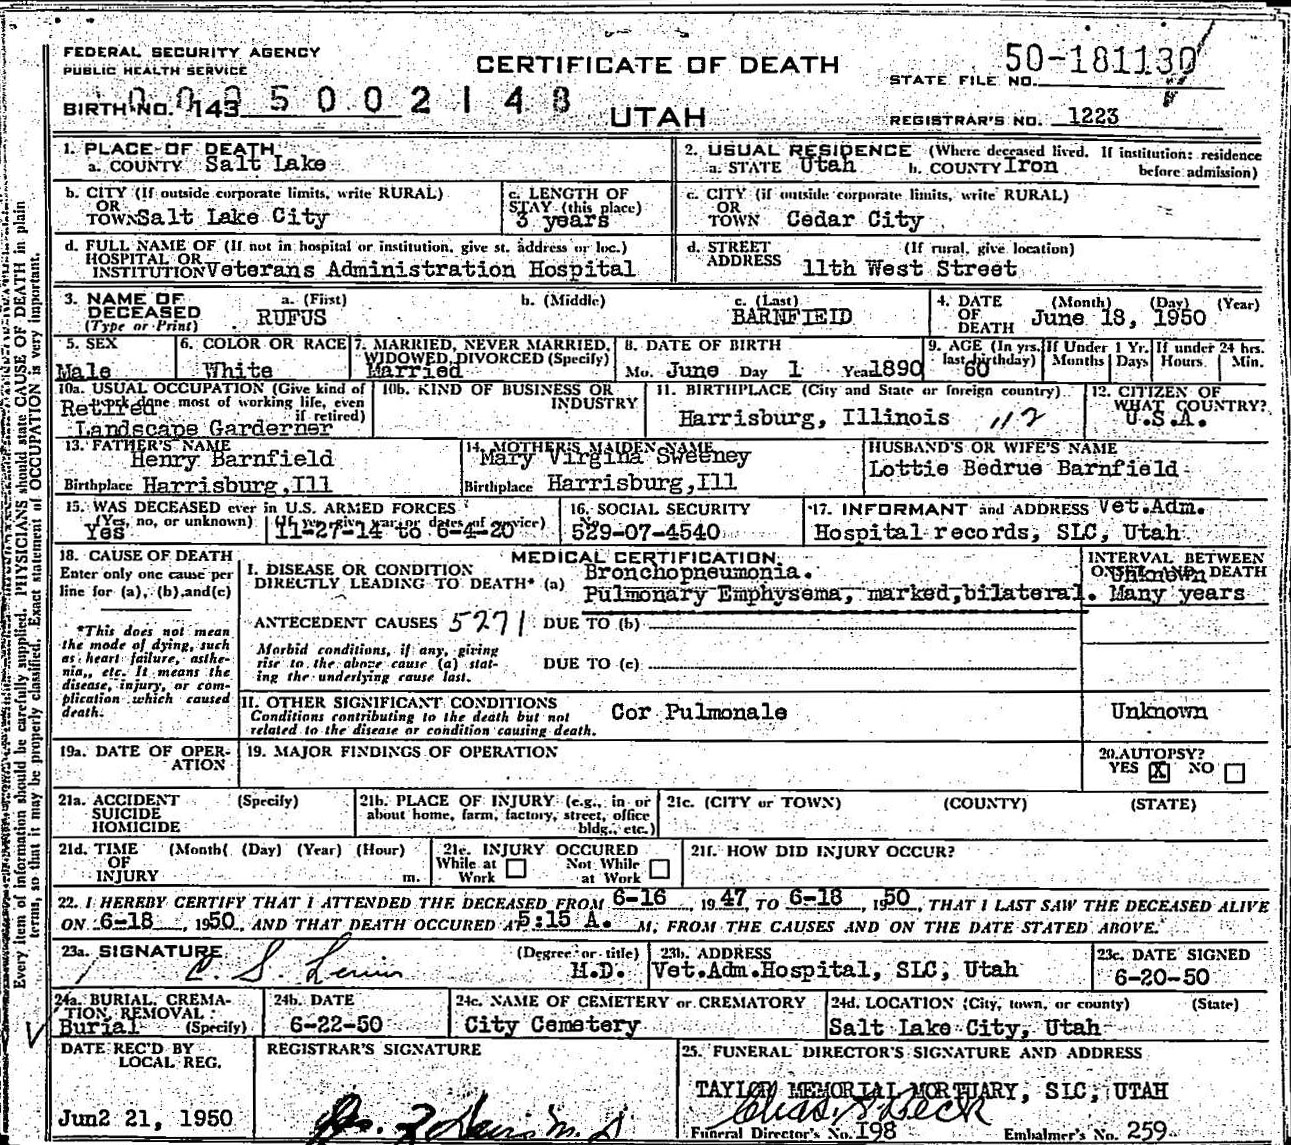 FEDERAL SECURITY AGENCY
PUBLIC HEALTH SERVICE
CERTIFICATE OF DEATH
UTAH
50-181130
STATE FILE NO.
BIRTH NO. 143
5002148
REGISTRAR'S NO. 1223
1. PLACE OF DEATH
a. COUNTY Salt Lake
2. USUAL RESIDENCE (Where deceased lived. If institution: residence before admission)
a. STATE Utah b. COUNTY Iron
b. CITY (If outside corporate limits, write RURAL)
OR
TOWN Salt Lake City
c. LENGTH OF
STAY (this place)
3 years
c. CITY (if outside corporate limits, write RURAL)
OR
TOWN Cedar City
d. FULL NAME OF (If not in hospital or institution, give st. address or loc.)
HOSPITAL OR
INSTITUTION Veterans Administration Hospital
d. STREET (If rural, give location)
ADDRESS
11th West Street
3. NAME OF a. (First) b. (Middle) c. (Last)
DECEASED RUFUS BARNFIEID
(Type or Print)
4. DATE (Month) (Day) (Year)
OF
DEATH June 18, 1950
5. SEX
Male
6. COLOR OR RACE
White
7. MARRIED, NEVER MARRIED,
WIDOWED, DIVORCED (Specify)
Married
8. DATE OF BIRTH
Mo. June Day 1 Year 1890
9. AGE (In yrs. last birthday)
60
If Under 1 Yr.
Months Days
If under 24 hrs.
Hours Min.
10a. USUAL OCCUPATION (Give kind of
work done most of working life, even
if retired)
Retired
Landscape Garderner
10b. KIND OF BUSINESS OR
INDUSTRY
11. BIRTHPLACE (City and State or foreign country)
Harrisburg, Illinois 112
12. CITIZEN OF
WHAT COUNTRY?
U.S.A.
13. FATHER'S NAME
Henry Barnfield
Birthplace Harrisburg,Ill
14. MOTHER'S MAIDEN NAME
Mary Virgina Sweeney
Birthplace Harrisburg,Ill
HUSBAND'S OR WIFE'S NAME
Lottie Bedrue Barnfield
15. WAS DECEASED ever in U.S. ARMED FORCES
(Yes, no, or unknown) (If yes, give war or dates of service)
Yes 11-27-14 to 6-4-20
16. SOCIAL SECURITY
No.
529-07-4540
17. INFORMANT and ADDRESS Vet.Adm.
Hospital records, SLC, Utah
18. CAUSE OF DEATH
Enter only one cause per
line for (a), (b),and(c)
*This does not mean
the mode of dying, such
as heart failure, asthe-
nia,, etc. It means the
disease, injury, or com-
plication which caused
death.
MEDICAL CERTIFICATION
I. DISEASE OR CONDITION
DIRECTLY LEADING TO DEATH* (a)
Bronchopneumonia.
Pulmonary Emphysema, marked,bilateral.
INTERVAL BETWEEN
ONSET AND DEATH
Unknown
Many years
ANTECEDENT CAUSES 5271 DUE TO (b)
Morbid conditions, if any, giving
rise to the above cause (a) stat-
ing the underlying cause last.
DUE TO (c)
II. OTHER SIGNIFICANT CONDITIONS
Conditions contributing to the death but not
related to the disease or condition causing death.
Cor Pulmonale
Unknown
19a. DATE OF OPER-
ATION
19. MAJOR FINDINGS OF OPERATION
20. AUTOPSY?
YES X NO
21a. ACCIDENT (Specify)
SUICIDE
HOMICIDE
21b. PLACE OF INJURY (e.g., in or
about home, farm, factory, street, office
bldg., etc.)
21c. (CITY or TOWN) (COUNTY) (STATE)
21d. TIME (Month( (Day) (Year) (Hour)
OF
INJURY m.
21e. INJURY OCCURED
While at Work
Not While at Work
21f. HOW DID INJURY OCCUR?
22. I HEREBY CERTIFY THAT I ATTENDED THE DECEASED FROM 6-16, 1947 TO 6-18, 1950, THAT I LAST SAW THE DECEASED ALIVE
ON 6-18, 1950, AND THAT DEATH OCCURED AT 5:15 A. M, FROM THE CAUSES AND ON THE DATE STATED ABOVE.
23a. SIGNATURE (Degree or title)
C. S.
M.D.
23b. ADDRESS
Vet.Adm.Hospital, SLC, Utah
23c. DATE SIGNED
6-20-50
24a. BURIAL, CREMA-
TION, REMOVAL:
Burial (Specify)
24b. DATE
6-22-50
24c. NAME OF CEMETERY or CREMATORY
City Cemetery
24d. LOCATION (City, town, or county) (State)
Salt Lake City, Utah
DATE REC'D BY
LOCAL REG.
Jun2 21, 1950
REGISTRAR'S SIGNATURE
25. FUNERAL DIRECTOR'S SIGNATURE AND ADDRESS
TAYLOR MEMORIAL MORTUARY, SLC, UTAH
Funeral Director's No. 198 Embalmer's No. 259
Every item of information should be carefully supplied. PHYSICIANS should state CAUSE OF DEATH in plain
terms, so that it may be properly classified. Exact statement of OCCUPATION is very important.